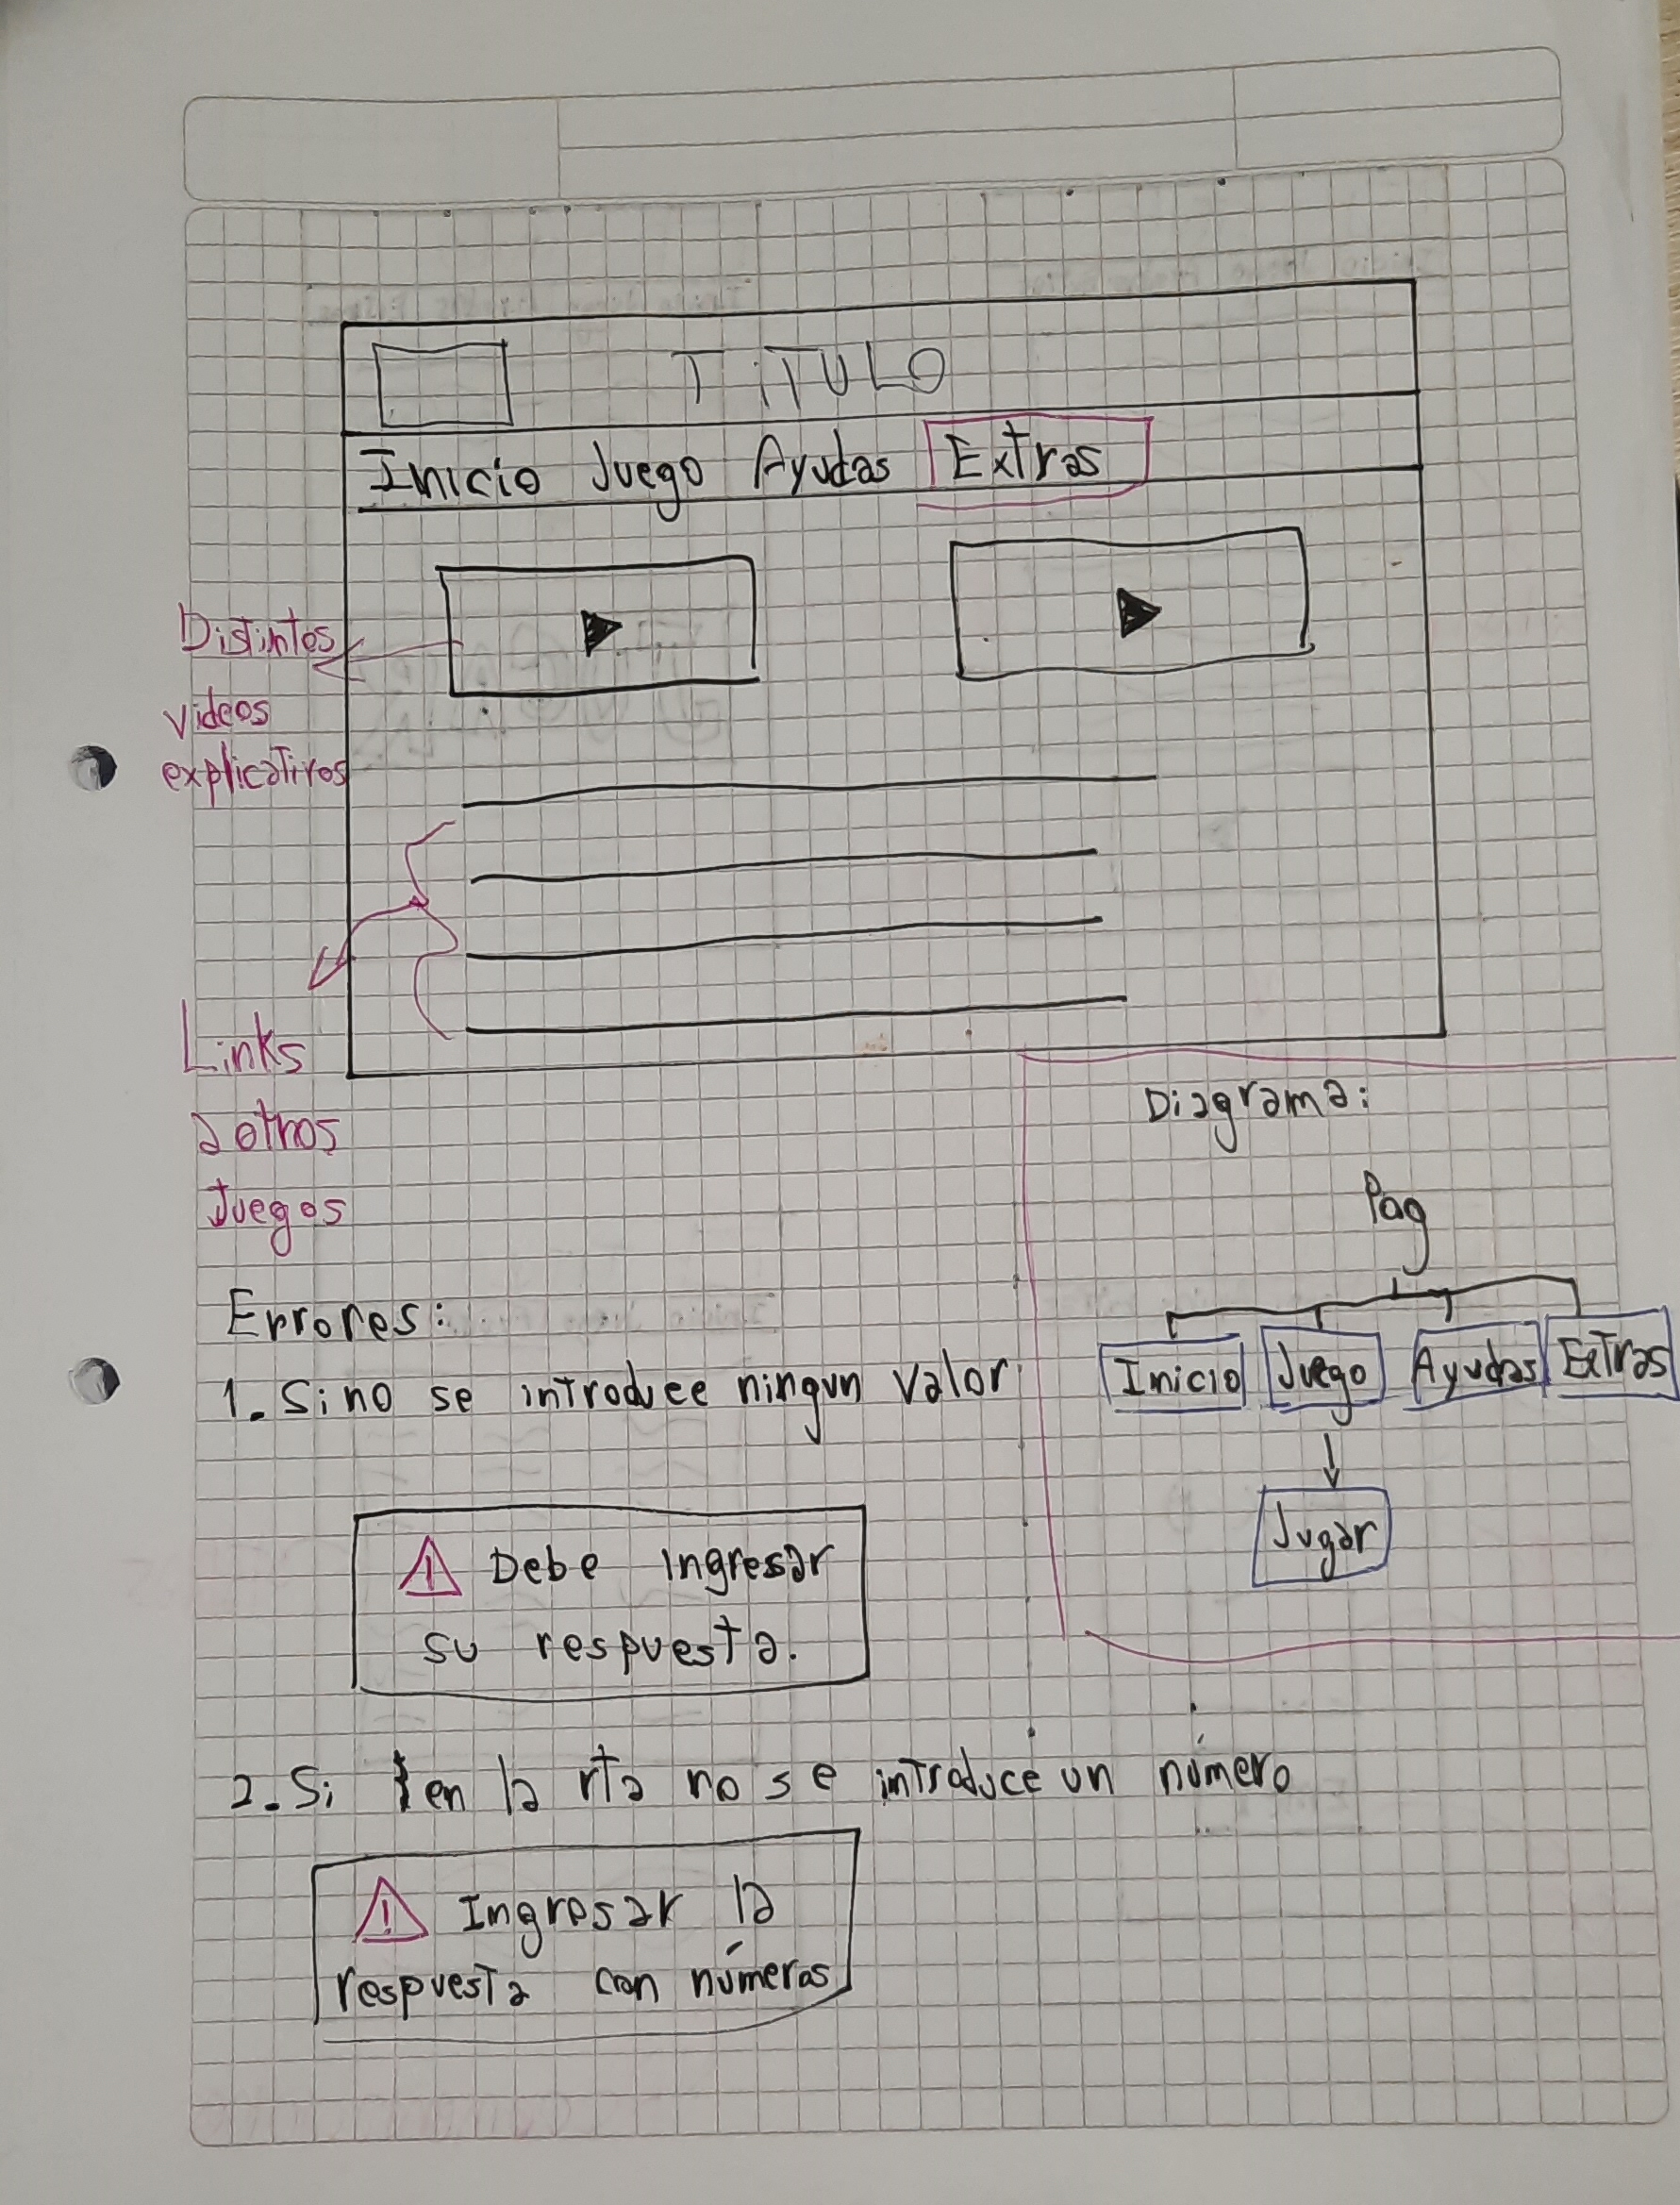 TiTULO
Inicio Juego Ayudas Extras
Distintos
videos
explicativos
Links
a otros
Juegos
Diagrama:
Pag
Inicio Juego Ayudas Extras
Jugar
Errores:
1. Si no se introduce ningun valor
⚠ Debe ingresar
su respuesta.
2. Si en la rta no se introduce un número
⚠ Ingresar la
respuesta con números